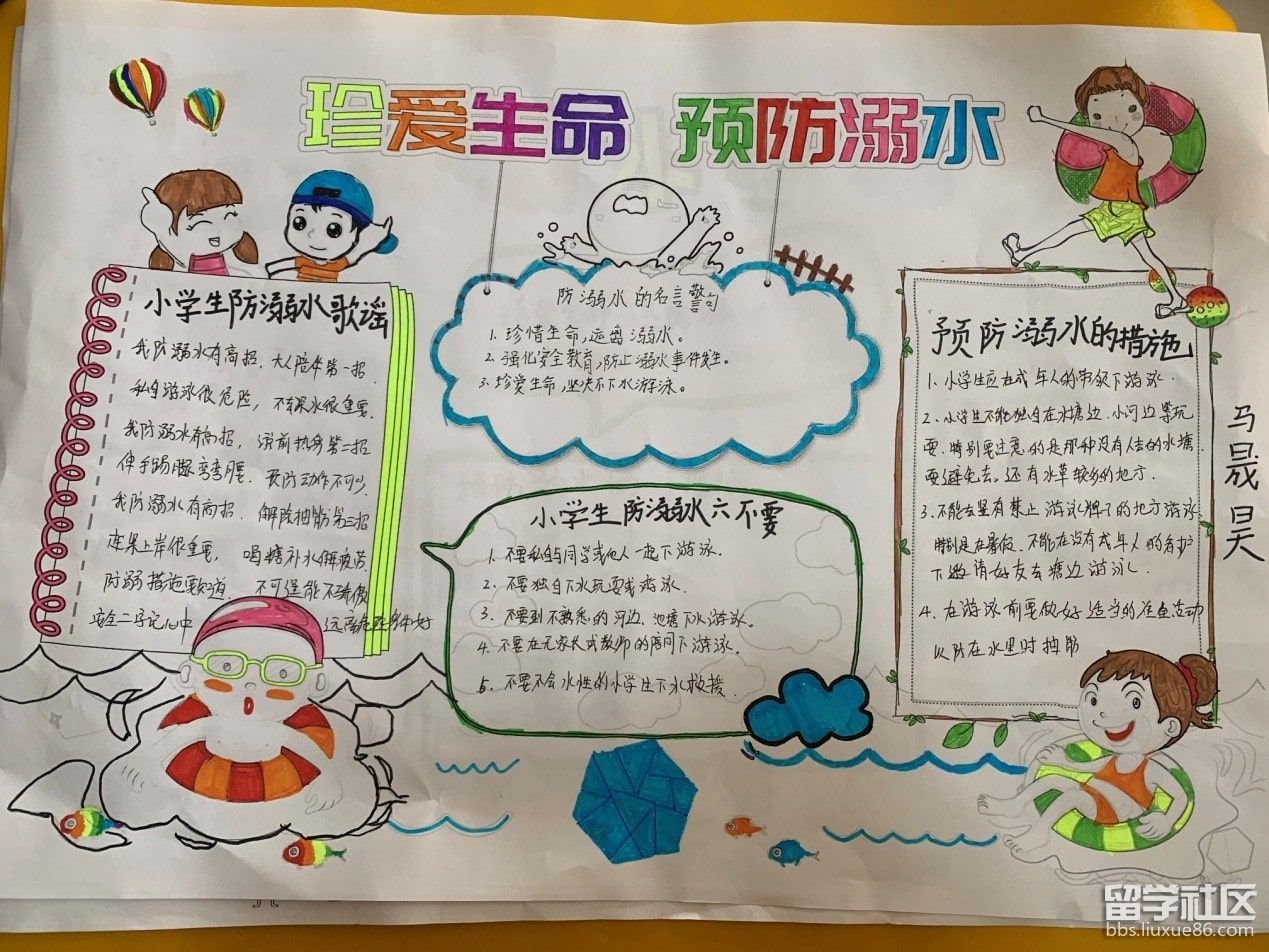 珍爱生命 预防溺水
小学生防溺水歌谣
我防溺水有高招，大人陪伴第一招
私自游泳很危险，不去深水很重要
我防溺水有高招，游前热身第二招
伸手踢腿弯弯腰，预防动作不可少
我防溺水有高招，解除抽筋第三招
上岸很重要，喝糖补水解疲劳
防溺措施要知道，不可逞能不骄傲
安全二字记心中
防溺水的名言警句
1. 珍惜生命，远离溺水。
2. 强化安全教育，防止溺水事件发生。
3. 珍爱生命，坚决不下水游泳。
小学生防溺水六不要
1. 不要私自与同学或他人一起下游泳。
2. 不要独自下水玩耍或游泳。
3. 不要到不熟悉的河边、池塘下水游泳。
4. 不要在无家长或教师的陪同下游泳。
5. 不要不会水性的小学生下水救援。
预防溺水的措施
1. 小学生应在成年人的带领下游泳。
2. 小学生不能独自在水塘边、小河边等玩
耍。特别要注意的是那种没有人去的水塘
要避免去。还有水草较多的地方。
3. 不能去里有禁止游泳牌子的地方游泳
特别是在暑假，不能在没有成年人的看护
下邀请好友去塘边游泳。
4. 在游泳前要做好适当的准备活动
以防在水里时抽筋
马晟昊
留学社区
bbs.liuxue86.com